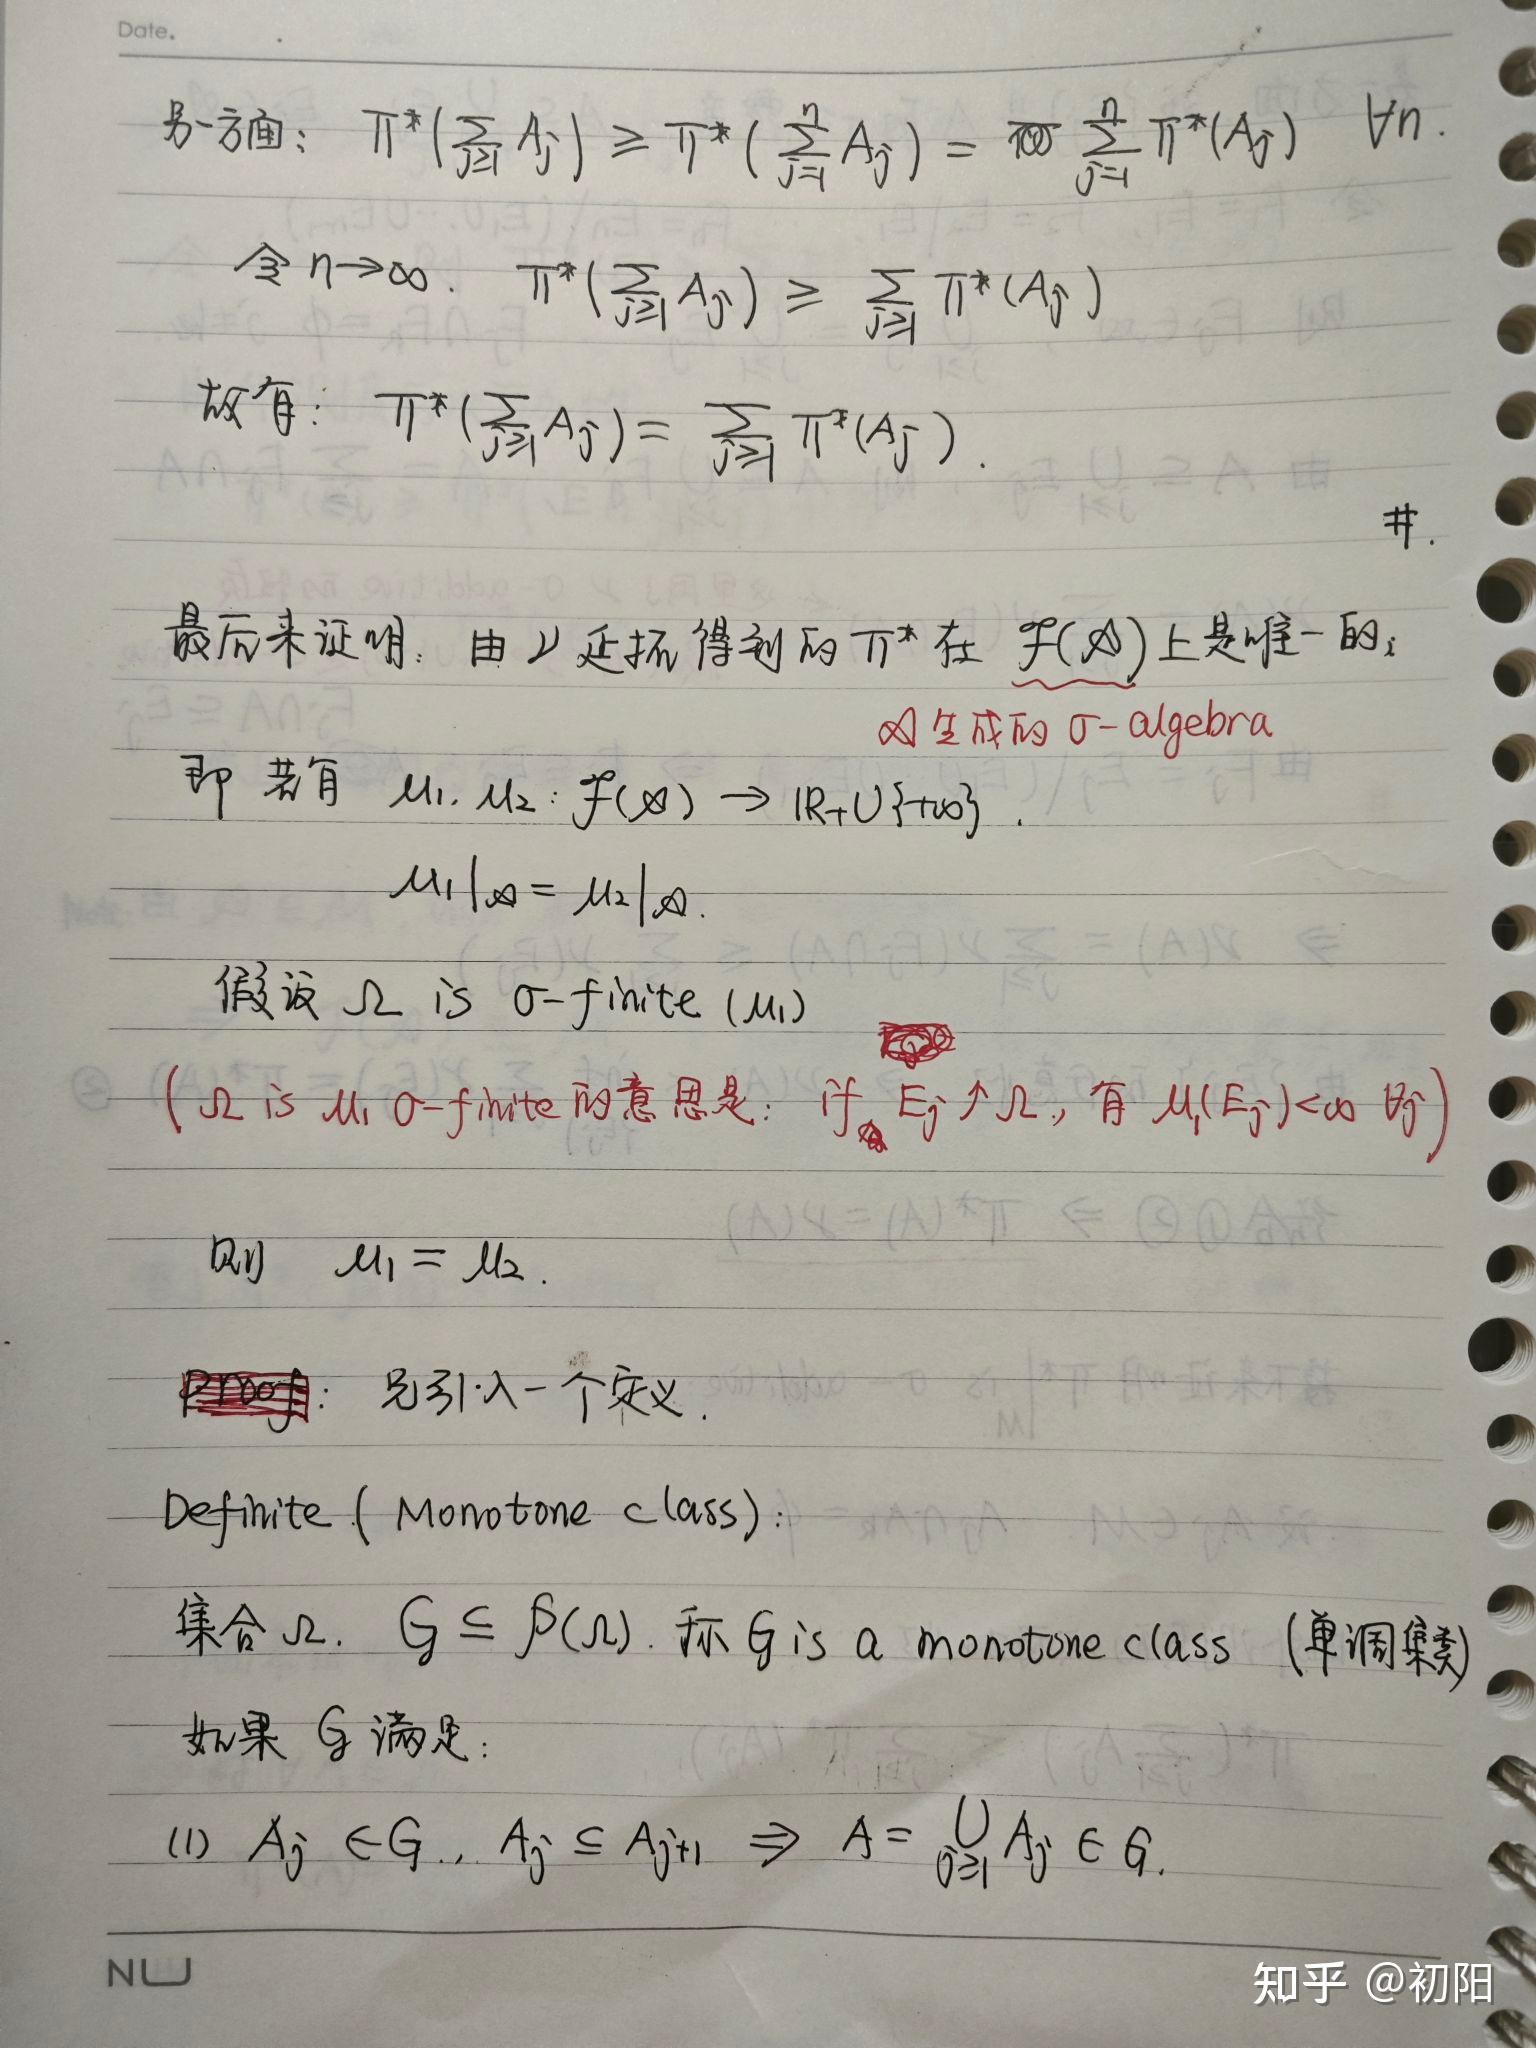 Date.
另一方面: π*(∑_{j≥1} A_j) ≥ π*(∑_{j=1}^{n} A_j) = ∑_{j=1}^{n} π*(A_j) ∀n.
令 n→∞. π*(∑_{j≥1} A_j) ≥ ∑_{j≥1} π*(A_j)
故有: π*(∑_{j≥1} A_j) = ∑_{j≥1} π*(A_j).
#.
最后来证明: 由 ν 延拓得到的 π* 在 ℱ(𝒜) 上是唯一的;
𝒜生成的 σ-algebra
即 若有 μ₁, μ₂: ℱ(𝒜) → ℝ₊∪{+∞}.
μ₁|𝒜 = μ₂|𝒜.
假设 Ω is σ-finite (μ₁)
(Ω is μ₁ σ-finite 的意思是: if E_j ↑ Ω, 有 μ₁(E_j)<∞ ∀j)
则 μ₁ = μ₂.
Proof: 先引入一个定义.
Definite (Monotone class):
集合 Ω. G ⊆ P(Ω). 称 G is a monotone class (单调集类)
如果 G 满足:
(1) A_j ∈ G., A_j ⊆ A_{j+1} ⇒ A = ⋃_{j≥1} A_j ∈ G.
NU
知乎 @初阳